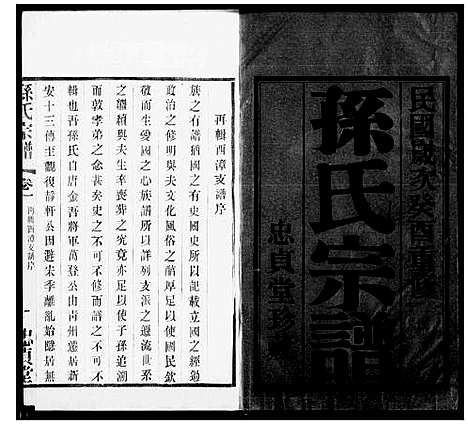 民國 酉重修
孫氏宗譜
忠貞堂珍
再輯西漳支譜序
族之有譜猶國之有史國史所以記載立國之經過
政治之修明與夫文化風俗之醇厚足以使國民欽
敬而生愛國之心族譜所以詳列支派之遷流世系
之繩續與夫生卒喪葬之究竟亦足以使子孫追溯
而敦孝弟之念故無史之不足以為國無譜之不足
輯也吾孫氏自唐金吾將軍萬登公由青州遷居新
安十三傳至觀復靜軒公因避朱季離亂始隱居無
孫氏宗譜
卷一
再輯西漳支譜序
一
忠貞堂